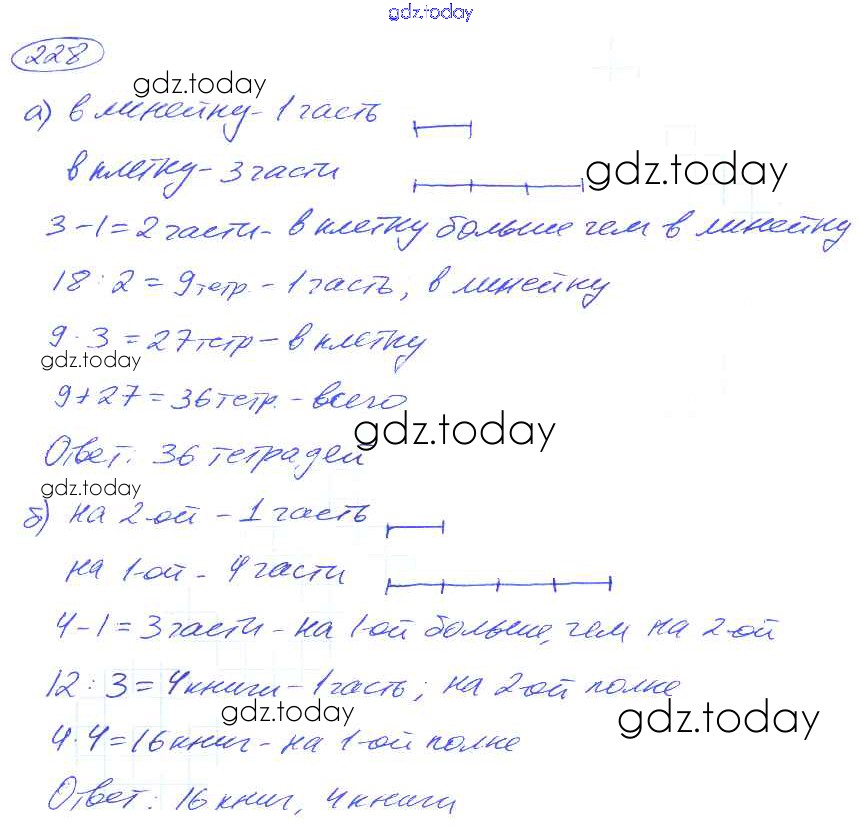 gdz.today
228
gdz.today
а) в линейку - 1 часть
в клетку - 3 части
gdz.today
3 - 1 = 2 части - в клетку больше чем в линейку
18 : 2 = 9 тетр. - 1 часть, в линейку
9 · 3 = 27 тетр - в клетку
gdz.today
9 + 27 = 36 тетр. - всего
gdz.today
Ответ: 36 тетрадей
gdz.today
б) на 2-ой - 1 часть
на 1-ой - 4 части
4 - 1 = 3 части - на 1-ой больше, чем на 2-ой
12 : 3 = 4 книги - 1 часть; на 2-ой полке
gdz.today
gdz.today
4 · 4 = 16 книг - на 1-ой полке
Ответ: 16 книг, 4 книги